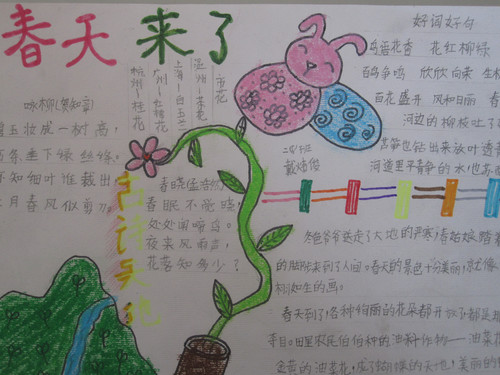 春天来了
咏柳(贺知章)
玉妆成一树高,
条垂下绿丝绦。
知细叶谁裁出
月春风似剪刀。
杭州—桂花
广州—木棉花
上海—白玉兰
温州—茶花
市花
古诗天地
春晓(孟浩然)
春眠不觉晓,
处处闻啼鸟。
夜来风雨声,
花落知多少?
好词好句
鸟语花香 花红柳绿
百鸟争鸣 欣欣向荣
百花盛开 风和日丽 春
河边的柳枝吐了
芦笋也钻出来放叶透
河道里平静的水,也
冬爷爷送走了大地的严寒,春姑娘踏着
的脚际来到了人间。春天的景色十分美丽,就像
栩如生的画。
春天到了,各种绚丽的花朵都开放了都是
寺目。田里农民伯伯种的油料作物——油菜花
金黄的油菜花,
的天地,美丽的